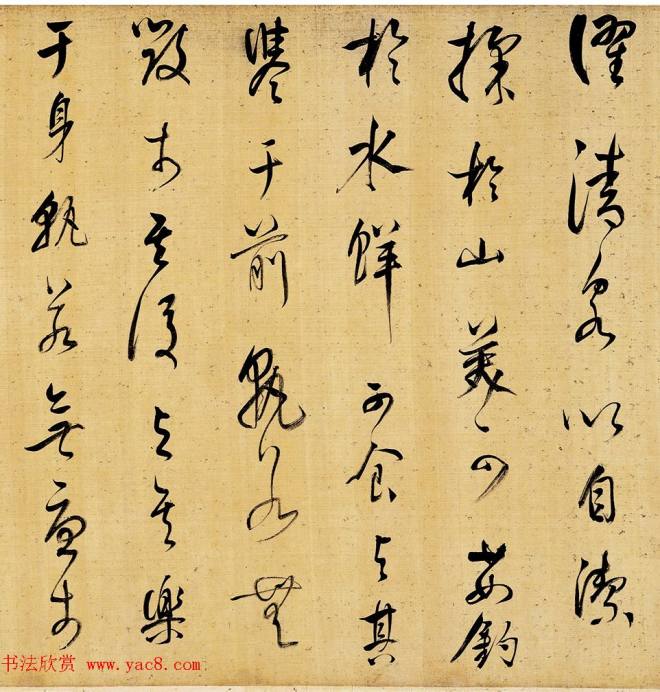 濯清泉以自潔
採於山美可茹釣
於水鮮可食與其
譽于前孰若無
毀於其後與其樂
于身孰若無憂於
书法欣赏 www.yac8.com